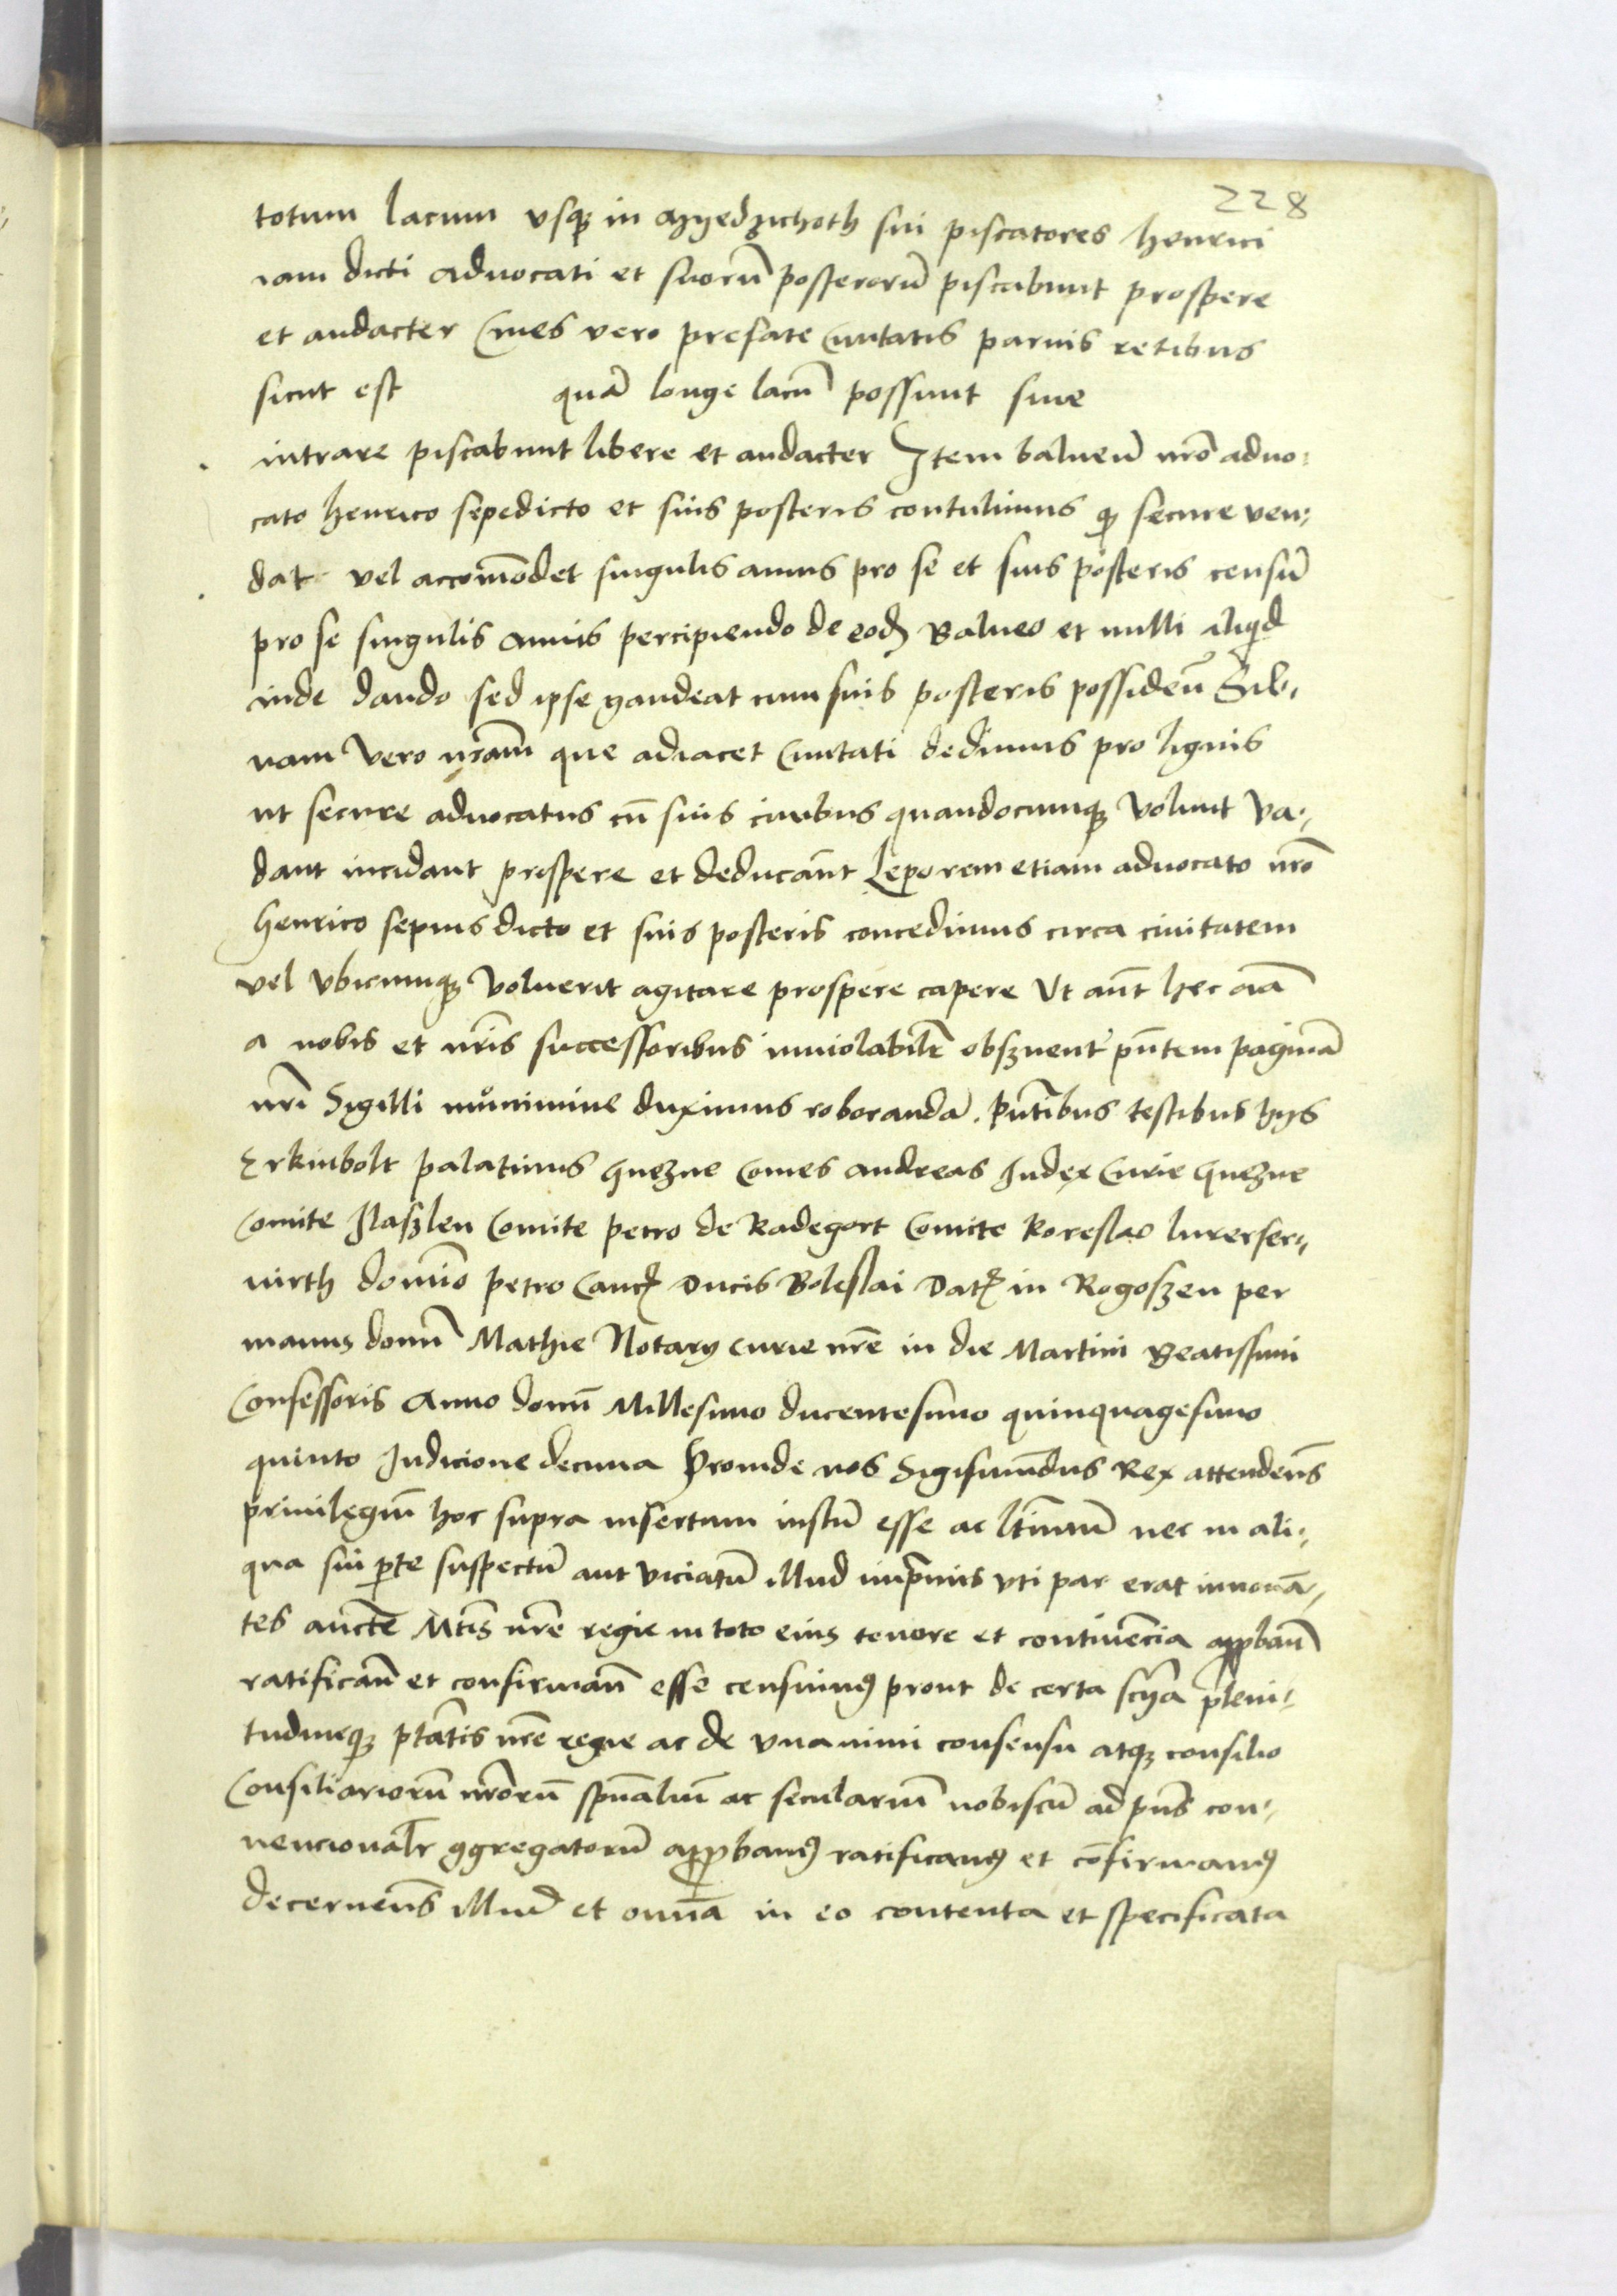 228
totum lacum vsq in Myedzichoth sui piscatores Henrici
iam dicti aduocati et suorū posterorū piscabunt prospere
et audacter Ciues vero prefate Ciuitatis paruis retibus
sicut est quā longe lacū possunt siue
intrare piscabunt libere et audacter Item balneū nrō aduo-
cato Henrico sepedicto et suis posteris contulimus q secure ven-
dat vel accomōdet singulis annis pro se et suis posteris censū
pro se singulis annis percipiendo de eod Balneo et nulli aliqd
inde dando sed ipse gaudeat cum suis posteris possideñ Sil-
uam vero nrām que adiacet Ciuitati dedimus pro lignis
ut secure aduocatus cū suis ciuibus quandocumq volunt va-
dant incidant prospere et deducānt Leporem etiam aduocato nrō
Henrico sepius dicto et suis posteris concedimus circa ciuitatem
vel vbicumq voluerit agitare prospere capere Ut aūt hec oīa
a nobis et nrīs successoribus inuiolabilr obseruent pñtem paginā
nrī Sigilli munimine duximus roborandā. Pñtibus testibus hijs
Erkinbolt palatinus Gnezne Comes Andreas Iudex Curie Gnezne
Comite Ilaszlen Comite petro de Radegort Comite Koreslao lurerser-
uirth domīo petro Canc Ducis Boleslai Dat in Rogoszen per
manus domī Mathie Notary curie nrē in die Martini Beatissimi
Confessoris Anno domī Millesimo ducentesimo quinquagesimo
quinto Indicione decima Proinde nos Sigismūndus Rex attendeñs
priuilegiū hoc supra insertum iustū esse ac ltīmū nec in ali-
qua sui pte suspectū aut viciatū illud inprimis vti par erat innouā-
tes aucte Mtīs nrē regie in toto eius tenore et continēncia appbañ
ratificañ et confirmañ esse censuim9 prout de certa scīa pleni-
tudineq ptātis nrē regie ac de vnanimi consensu atq consilio
Consiliariorū nrōrū spūaliū ac seculariū nobiscū ad pñs con-
uencionalr 9gregatorū appbam9 ratificam9 et cōfirmam9
decerneñs illud et omīa in eo contenta et specificata